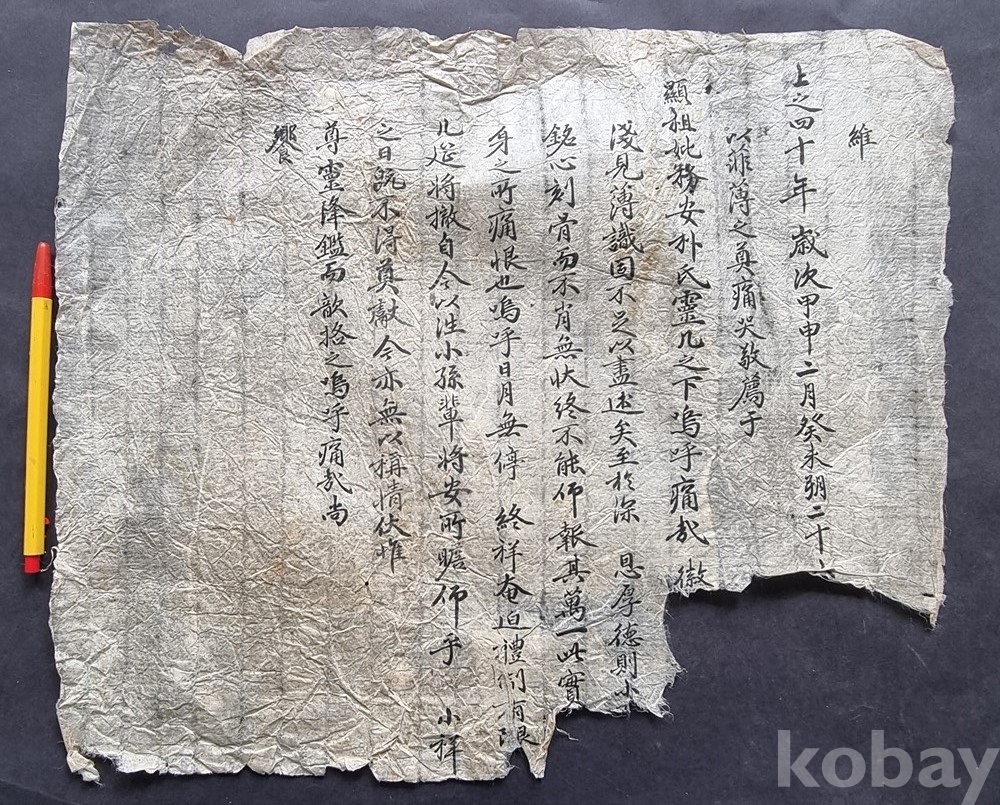 維
上之四十年歲次甲申二月癸未朔二十
以菲薄之奠痛哭敬薦于
顯祖妣務安朴氏靈几之下嗚呼痛哉 徽
淺見薄識固不足以盡述矣至於深 恩厚德則小
銘心刻骨而不肖無狀終不能仰報其萬一此實
身之所痛恨也嗚呼日月無停 終祥奄迫禮制有限
几筵將撤自今以往小孫輩將安所瞻仰乎 小祥
之日旣不得奠獻今亦無以稱情伏惟
尊靈降鑑而歆格之嗚呼痛哉尚
饗
kobay